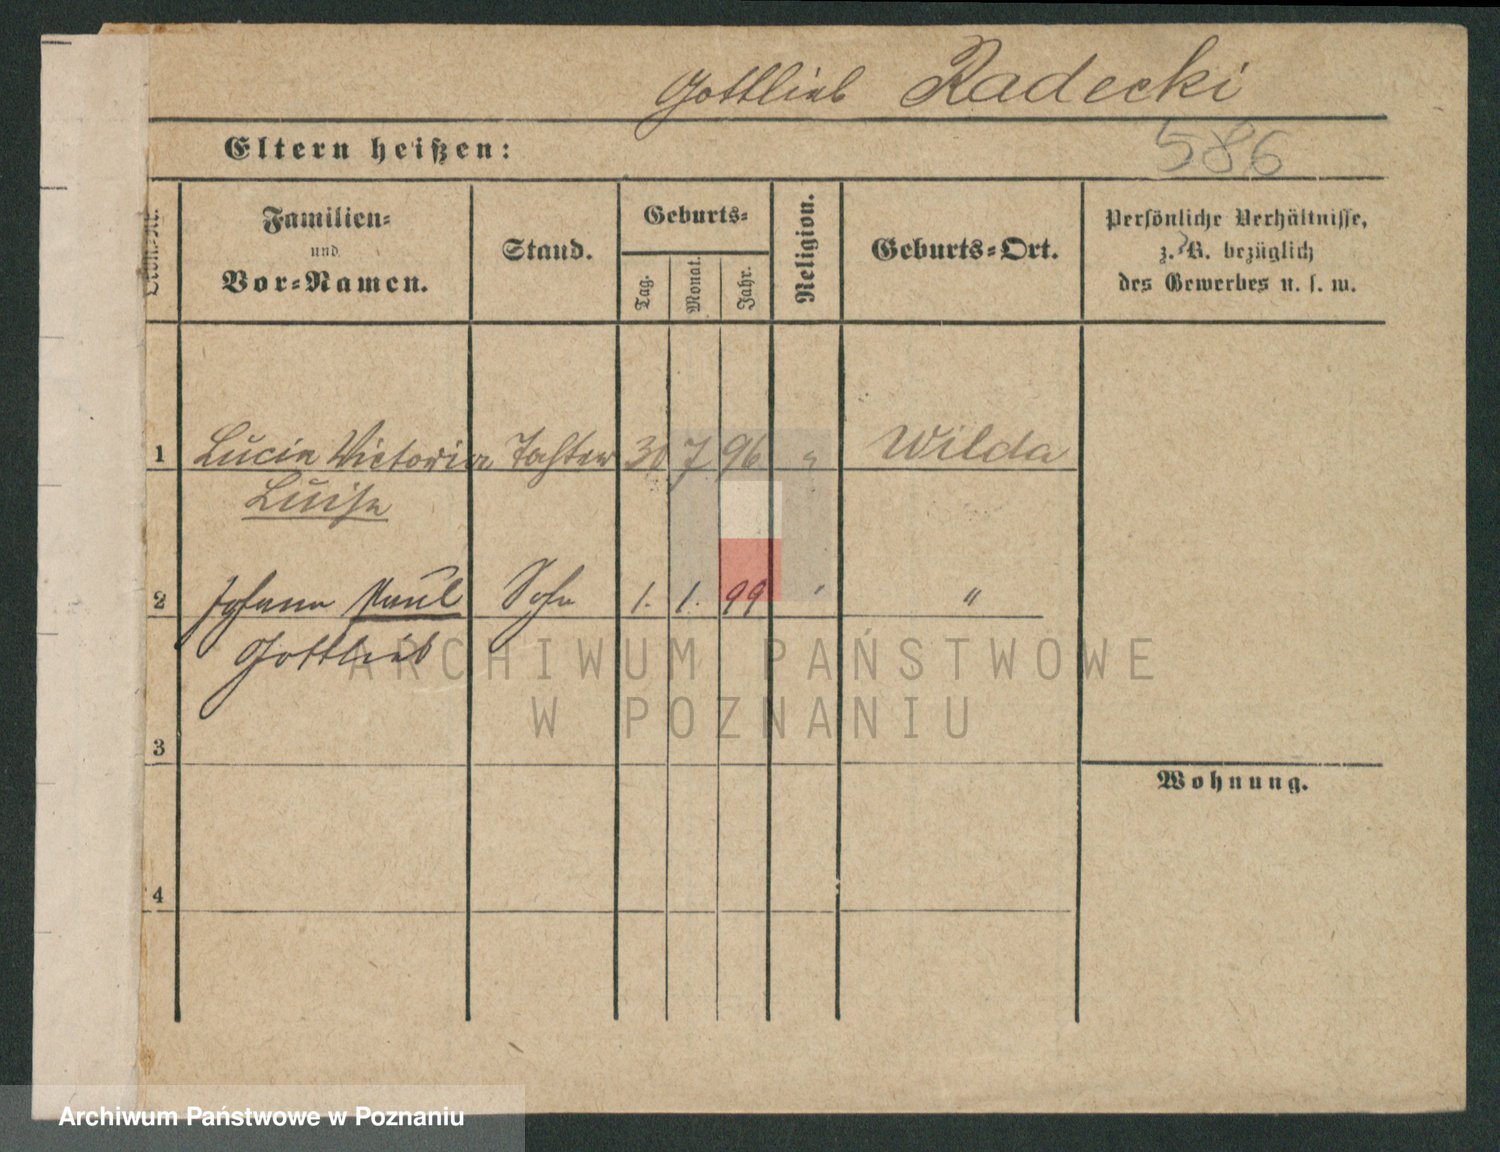 Gottlieb Radecki
586
Eltern heißen:
Familien- und Vor-Namen.
Stand.
Geburts-
Tag.
Monat.
Jahr.
Religion.
Geburts-Ort.
Persönliche Verhältnisse,
z. B. bezüglich
des Gewerbes u. s. w.
1 Lucia Victoria Tochter 30 7 96 " Wilda
Luise
2 Johann Paul Sohn 1. 1. 99 " "
Gottlieb
ARCHIWUM PAŃSTWOWE
W POZNANIU
3
Wohnung.
4
Archiwum Państwowe w Poznaniu